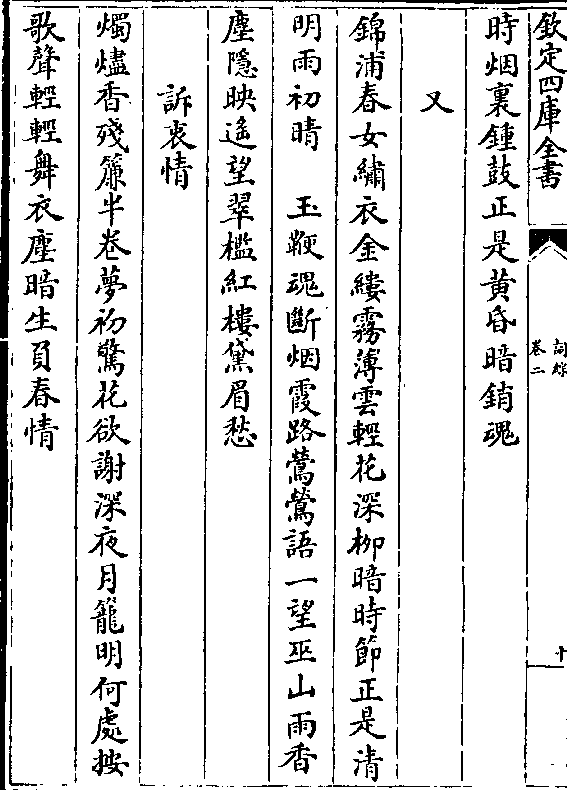 欽定四庫全書
詞綜
卷二
十
時烟裏鍾鼓正是黄昏暗銷魂
又
錦浦春女繡衣金縷霧薄雲輕花深栁暗時節正是清
明雨初晴　玉鞭魂斷烟霞路鶯鶯語一望巫山雨香
塵隱映遙望翠檻紅樓黛眉愁
訴衷情
燭燼香殘簾半卷夢初驚花欲謝深夜月籠明何處按
歌聲輕輕舞衣塵暗生負春情